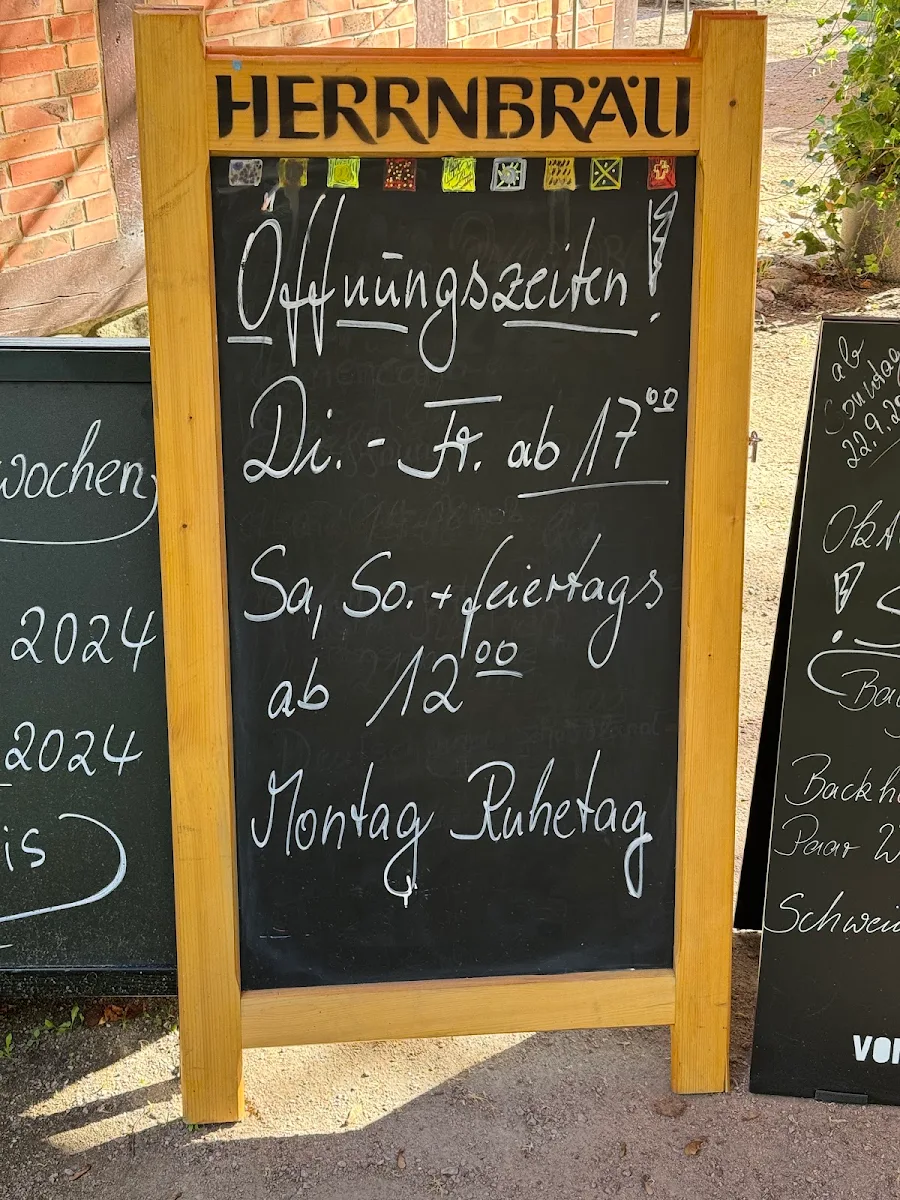 HERRNBRÄU
Öffnungszeiten!
Di. - Fr. ab 17⁰⁰
Sa, So. + feiertags
ab 12⁰⁰
Montag Ruhetag
wochen
2024
2024
is
ab
Sonntag
22.9.20
!
Backh
Paar W
Schwei
VOM